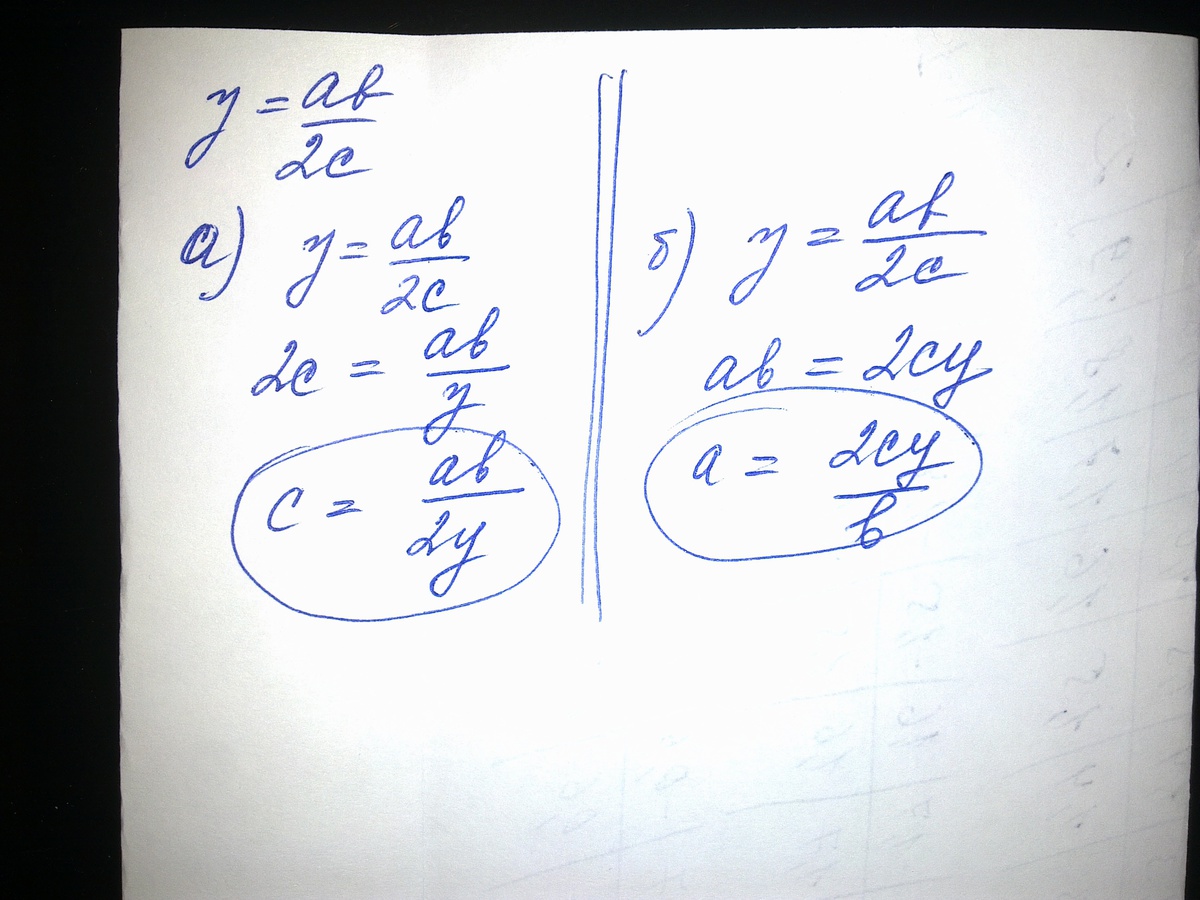 y = ab/2c
а) y = ab/2c
2c = ab/y
c = ab/2y
б) y = ab/2c
ab = 2cy
a = 2cy/b